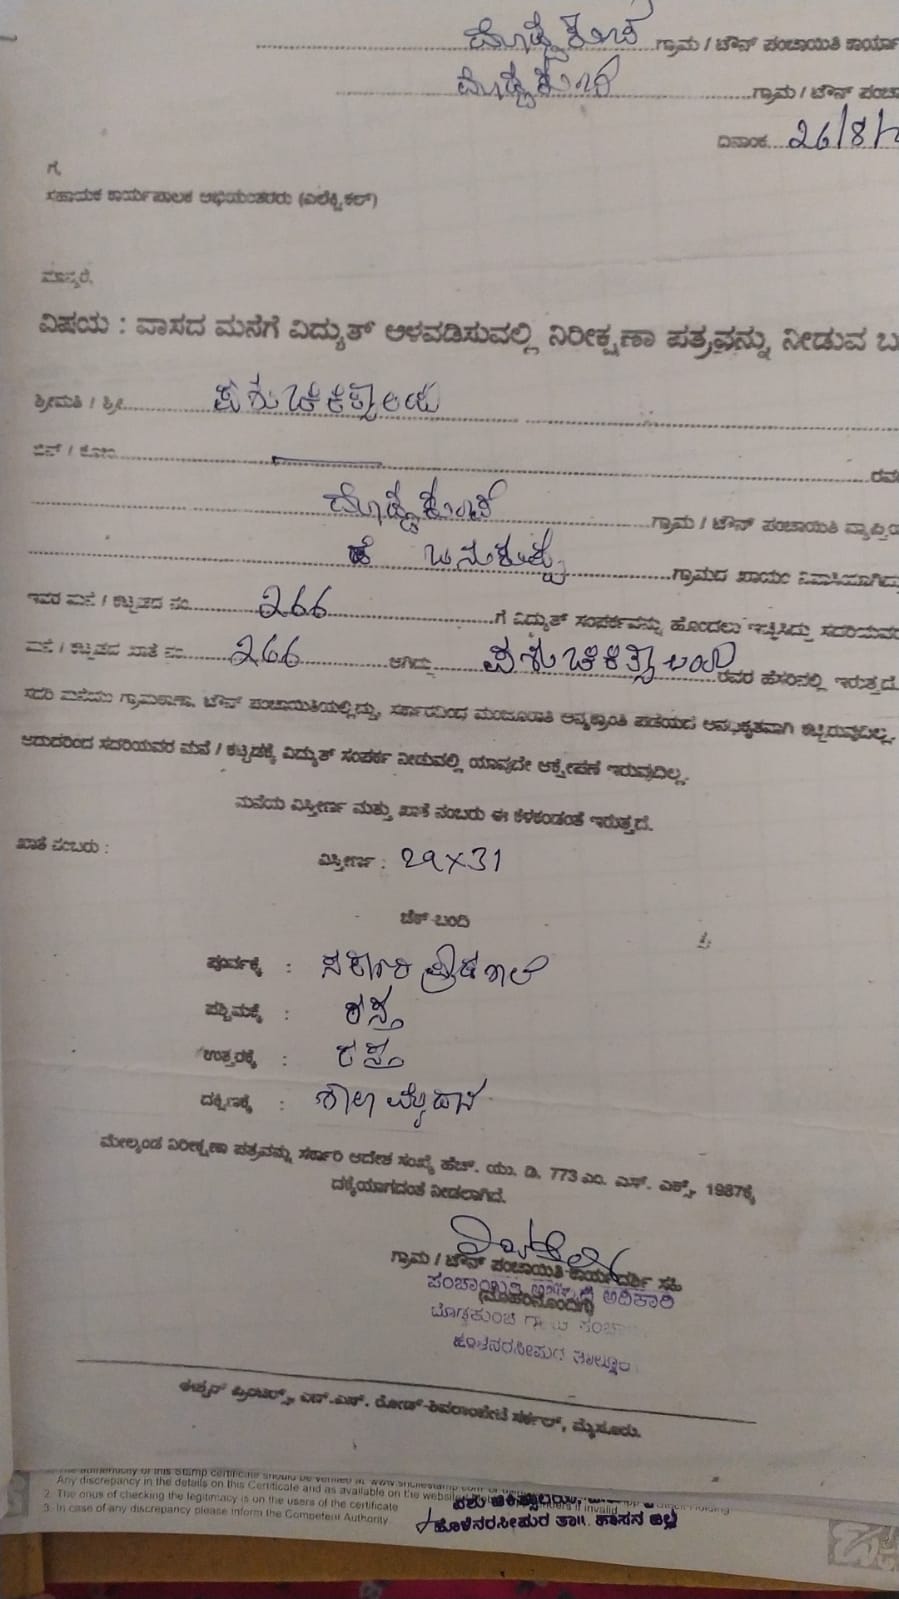 ದೊಡ್ಡಕುಂಚೆ ಗ್ರಾಮ / ಟೌನ್ ಪಂಚಾಯಿತಿ ಕಾರ್ಯಾ
ದೊಡ್ಡಕುಂಚೆ ಗ್ರಾಮ / ಟೌನ್ ಪಂಚಾ
ದಿನಾಂಕ 26/8/
ಗೆ,
ಸಹಾಯಕ ಕಾರ್ಯಪಾಲಕ ಅಭಿಯಂತರರು (ಎಲೆಕ್ಟ್ರಿಕಲ್)
ಮಾನ್ಯರೆ,
ವಿಷಯ : ವಾಸದ ಮನೆಗೆ ವಿದ್ಯುತ್ ಅಳವಡಿಸುವಲ್ಲಿ ನಿರೀಕ್ಷಣಾ ಪತ್ರವನ್ನು ನೀಡುವ ಬ
ಶ್ರೀಮತಿ / ಶ್ರೀ ಪಶುಚಿಕಿತ್ಸಾಲಯ
ಬಿನ್ / ಕೋಂ ರವ
ದೊಡ್ಡಕುಂಚೆ ಗ್ರಾಮ / ಟೌನ್ ಪಂಚಾಯಿತಿ ವ್ಯಾಪ್ತಿಯ
ಗ್ರಾಮದ ಖಾಯಂ ನಿವಾಸಿಯಾಗಿದ್ದು
ಇವರ ಮನೆ / ಕಟ್ಟಡದ ನಂ. 266 ಗೆ ವಿದ್ಯುತ್ ಸಂಪರ್ಕವನ್ನು ಹೊಂದಲು ಇಚ್ಛಿಸಿದ್ದು ಸದರಿಯವರ
ಮನೆ / ಕಟ್ಟಡದ ಖಾತೆ ನಂ. 266 ಆಗಿದ್ದು ಪಶುಚಿಕಿತ್ಸಾಲಯ ರವರ ಹೆಸರಿನಲ್ಲಿ ಇರುತ್ತದೆ.
ಸದರಿ ಮನೆಯು ಗ್ರಾಮಠಾಣಾ, ಟೌನ್ ಪಂಚಾಯಿತಿಯಲ್ಲಿದ್ದು, ಸರ್ಕಾರದಿಂದ ಮಂಜೂರಾತಿ ಅನ್ಯಕ್ರಾಂತಿ ಪಡೆಯದೆ ಅನಧಿಕೃತವಾಗಿ ಕಟ್ಟಿರುವುದಿಲ್ಲ.
ಆದುದರಿಂದ ಸದರಿಯವರ ಮನೆ / ಕಟ್ಟಡಕ್ಕೆ ವಿದ್ಯುತ್ ಸಂಪರ್ಕ ನೀಡುವಲ್ಲಿ ಯಾವುದೇ ಆಕ್ಷೇಪಣೆ ಇರುವುದಿಲ್ಲ.
ಮನೆಯ ವಿಸ್ತೀರ್ಣ ಮತ್ತು ಖಾತೆ ನಂಬರು ಈ ಕೆಳಕಂಡಂತೆ ಇರುತ್ತದೆ.
ಖಾತೆ ನಂಬರು :
ವಿಸ್ತೀರ್ಣ : 29x31
ಚೆಕ್-ಬಂದಿ
ಪೂರ್ವಕ್ಕೆ : ಸರ್ಕಾರಿ ಪ್ರೌಢಶಾಲೆ
ಪಶ್ಚಿಮಕ್ಕೆ : ರಸ್ತೆ
ಉತ್ತರಕ್ಕೆ : ರಸ್ತೆ
ದಕ್ಷಿಣಕ್ಕೆ : ಶಾಲಾ ಮೈದಾನ
ಮೇಲ್ಕಂಡ ನಿರೀಕ್ಷಣಾ ಪತ್ರವನ್ನು ಸರ್ಕಾರಿ ಆದೇಶ ಸಂಖ್ಯೆ ಹೆಚ್. ಯು. ಡಿ. 773 ಎಂ. ಎಸ್. ಎಕ್ಸ್. 1987ಕ್ಕೆ
ದಕ್ಕೆಯಾಗದಂತೆ ನೀಡಲಾಗಿದೆ.
ಗ್ರಾಮ / ಟೌನ್ ಪಂಚಾಯಿತಿ ಕಾರ್ಯದರ್ಶಿ ಸಹಿ
(ಮೊಹರಿನೊಂದಿಗೆ)
ಪಂಚಾಯಿತಿ ಅಭಿವೃದ್ಧಿ ಅಧಿಕಾರಿ
ದೊಡ್ಡಕುಂಚೆ ಗ್ರಾಮ ಪಂಚಾ
ಹೊಳೆನರಸೀಪುರ ತಾಲ್ಲೂಕು
ಈಶ್ವರ್ ಪ್ರಿಂಟರ್ಸ್, ಎನ್.ಎಸ್. ರೋಡ್-ಶಿವರಾಂಪೇಟೆ ಸರ್ಕಲ್, ಮೈಸೂರು.
The authenticity of this Stamp certificate should be verified at
Any discrepancy in the details on this Certificate and as available on the website
2. The onus of checking the legitimacy is on the users of the certificate
3. In case of any discrepancy please inform the Competent Authority.
ಹೊಳೆನರಸೀಪುರ ತಾ॥. ಹಾಸನ ಜಿಲ್ಲೆ